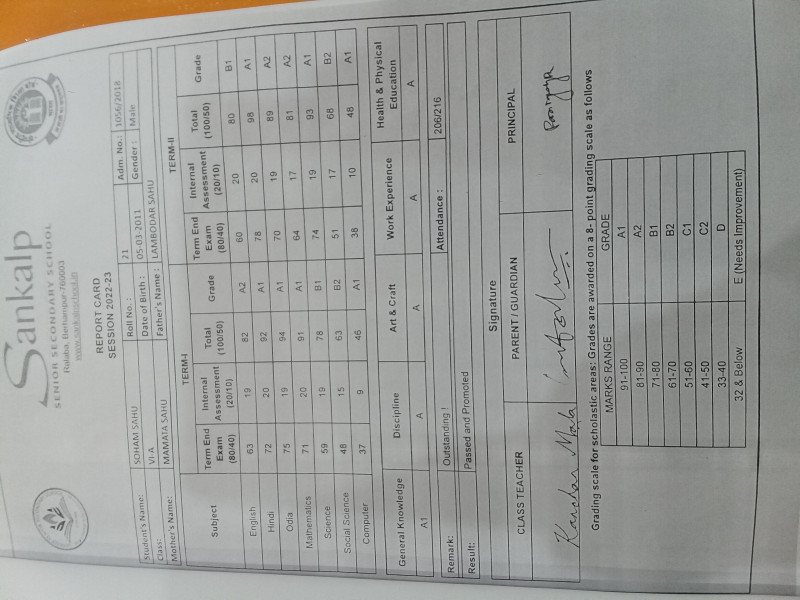 Sankalp
SENIOR SECONDARY SCHOOL
Ralaba, Berhampur-760003
www.sankalpschool.in
REPORT CARD
SESSION 2022-23
Student's Name: SOHAM SAHU Roll No.: 21 Adm. No.: 1056/2018
Class: VI-A Date of Birth: 05-03-2011 Gender: Male
Mother's Name: MAMATA SAHU Father's Name: LAMBODAR SAHU
TERM-I TERM-II
Subject Term End Exam (80/40) Internal Assessment (20/10) Total (100/50) Grade Term End Exam (80/40) Internal Assessment (20/10) Total (100/50) Grade
English 63 19 82 A2 60 20 80 B1
Hindi 72 20 92 A1 78 20 98 A1
Odia 75 19 94 A1 70 19 89 A2
Mathematics 71 20 91 A1 64 17 81 A2
Science 59 19 78 B1 74 19 93 A1
Social Science 48 15 63 B2 51 17 68 B2
Computer 37 9 46 A1 38 10 48 A1
General Knowledge Discipline Art & Craft Work Experience Health & Physical Education
A1 A A A A
Remark: Outstanding ! Attendance : 206/216
Result: Passed and Promoted
Signature
CLASS TEACHER PARENT/ GUARDIAN PRINCIPAL
Grading scale for scholastic areas: Grades are awarded on a 8- point grading scale as follows
MARKS RANGE GRADE
91-100 A1
81-90 A2
71-80 B1
61-70 B2
51-60 C1
41-50 C2
33-40 D
32 & Below E (Needs Improvement)